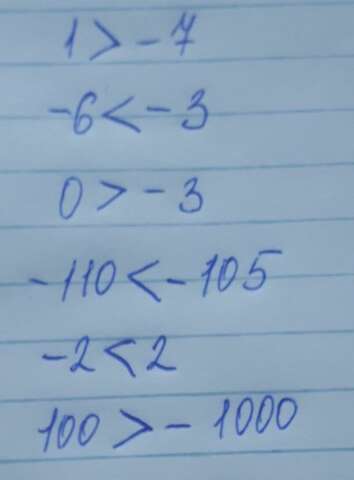 1 > - 7
-6 < - 3
0 > - 3
-110 < - 105
-2 < 2
100 > - 1000